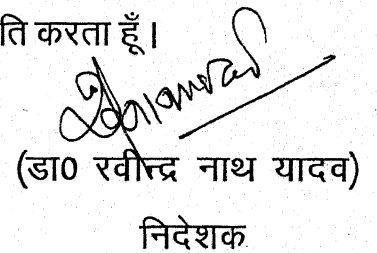 ति करता हूँ।
(डा0 रवीन्द्र नाथ यादव)
निदेशक